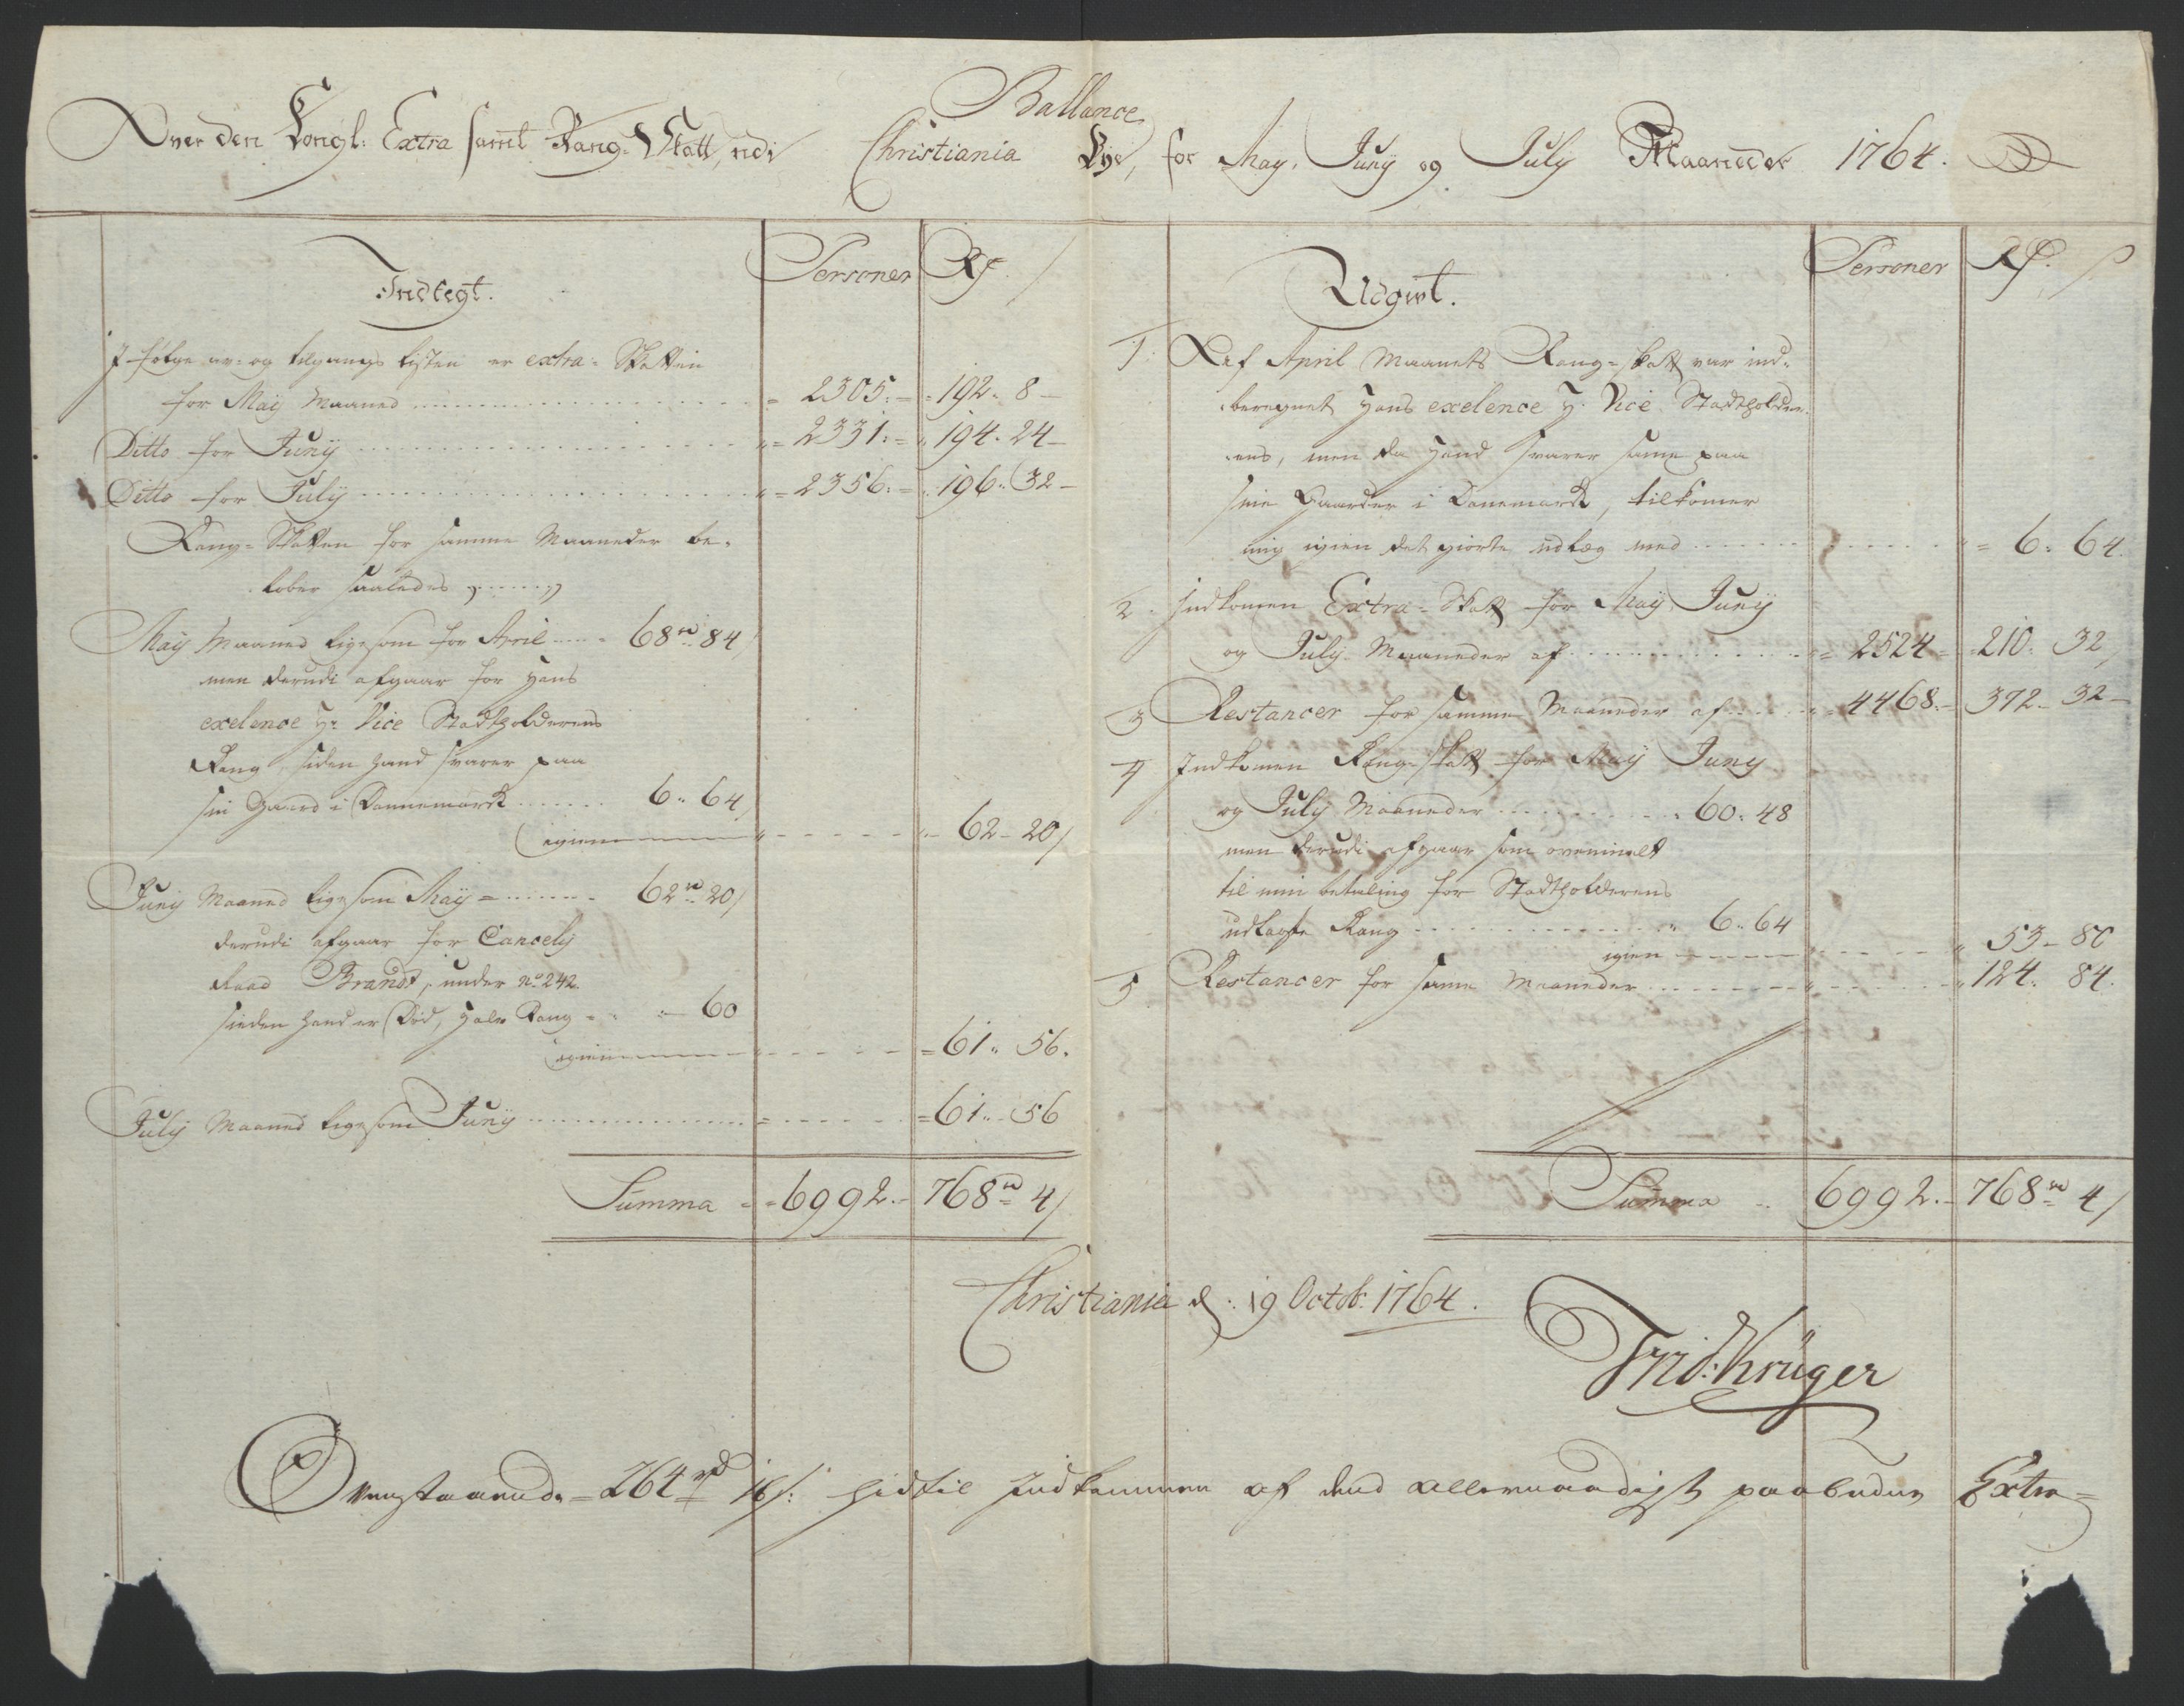 Ballance
Over den Kongl: Extra samt Rang-Skatt, udi Christiania Bye, for May, Juny og July Maaneder 1764.
Indtegt.
Personer Rd ß
I følge av- og tilgangs listen er extra-Skatten
for May Maaned 2305 192 8
Ditto for Juny 2331 194 24
Ditto for July 2356 196 32
Rang-Skatten for samme Maaneder be-
løber saaledes
May Maaned ligesom for April 68 rd 84
men derudi afgaar for Hans
exelence Hr Vice Stadtholderens
Rang, siden hand svarer paa
sin Gaard i Dannemarck 6 64
igien 62 20
Juny Maaned ligesom May 62 rd 20
derudi afgaar for Cancely
Raad Brandt, under No 242
siden hand er Død, halv Rang 60
igien 61 56
July Maaned ligesom Juny 61 56
Summa 6992 768 rd 4
Udgivt.
Personer Rd ß
1. Af April Maanets Rang-skatt var ind-
beregnet Hans exelence H: Vice Stadtholder-
ens, men da Hand svarer same paa
sine Gaarder i Danemarck, tilkomer
mig igien det giorte udlæg med 6 64
2. Indkomen Extra-Skatt for May, Juny
og July Maaneder af 2524 210 32
3 Restancer for samme Maaneder af 4468 372 32
4 Indkomen Rang-skatt for May Juny
og July Maaneder 60 48
men derudi afgaar som ovenmelt
til min betaling for Stadtholderens
udlagte Rang 6 64
igien 53 80
5 Restancer for same Maaneder 124 84
Summa 6992 768 rd 4
Christiania d: 19 Octob: 1764.
Frid: Krüger
Ovenstaaende 264 rd 16 ß: hidtil Indkommen af dend allernaadigst paabudne Extra-